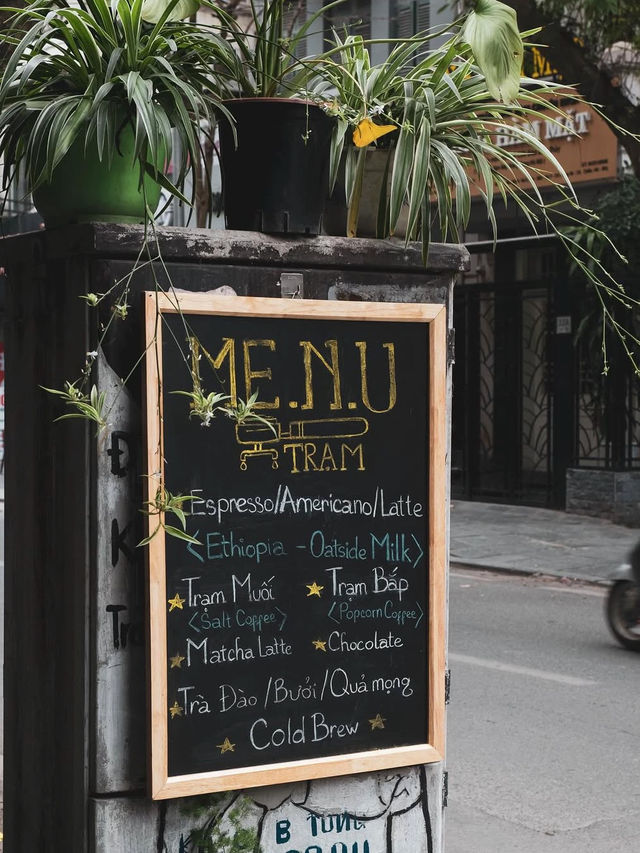 HẦM MẬT
ME.N.U
TRẠM
Espresso/Americano/Latte
<Ethiopia - Oatside Milk>
Trạm Muối
Trạm Bắp
<Salt Coffee>
<Popcorn Coffee>
Matcha Latte
Chocolate
Trà Đào/Bưởi/Quả mọng
Cold Brew
B TÙNG